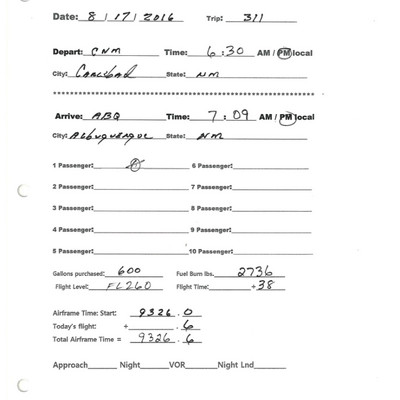 Date: 8 / 17 / 2016 Trip: 311
Depart: CNM Time: 6:30 AM / PM local
City: Carlsbad State: NM
Arrive: ABQ Time: 7:09 AM / PM local
City: Albuquerque State: NM
1 Passenger: 6 Passenger:
2 Passenger: 7 Passenger:
3 Passenger: 8 Passenger:
4 Passenger: 9 Passenger:
5 Passenger: 10 Passenger:
Gallons purchased: 600 Fuel Burn lbs. 2736
Flight Level: FL260 Flight Time: +38
Airframe Time: Start: 9326.0
Today's flight: + .6
Total Airframe Time = 9326.6
Approach Night VOR Night Lnd